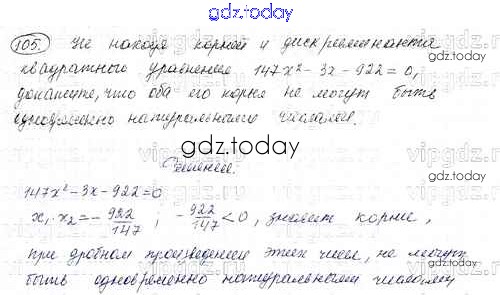 gdz.today
105. Не находя корней и дискриминанта
квадратного уравнения 147x² - 3x - 922 = 0,
докажите, что оба его корня не могут быть
одновременно натуральными числами.
gdz.today
Решение.
147x² - 3x - 922 = 0
x₁ · x₂ = - 922/147 ; - 922/147 < 0, значит корни,
при дробном произведении этих чисел, не могут
быть одновременно натуральными числами
gdz.today